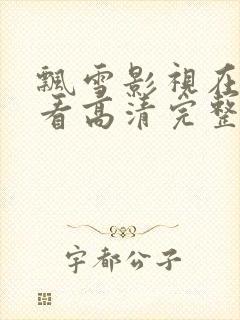 飄雪影視在
看高清完整
宇都公子